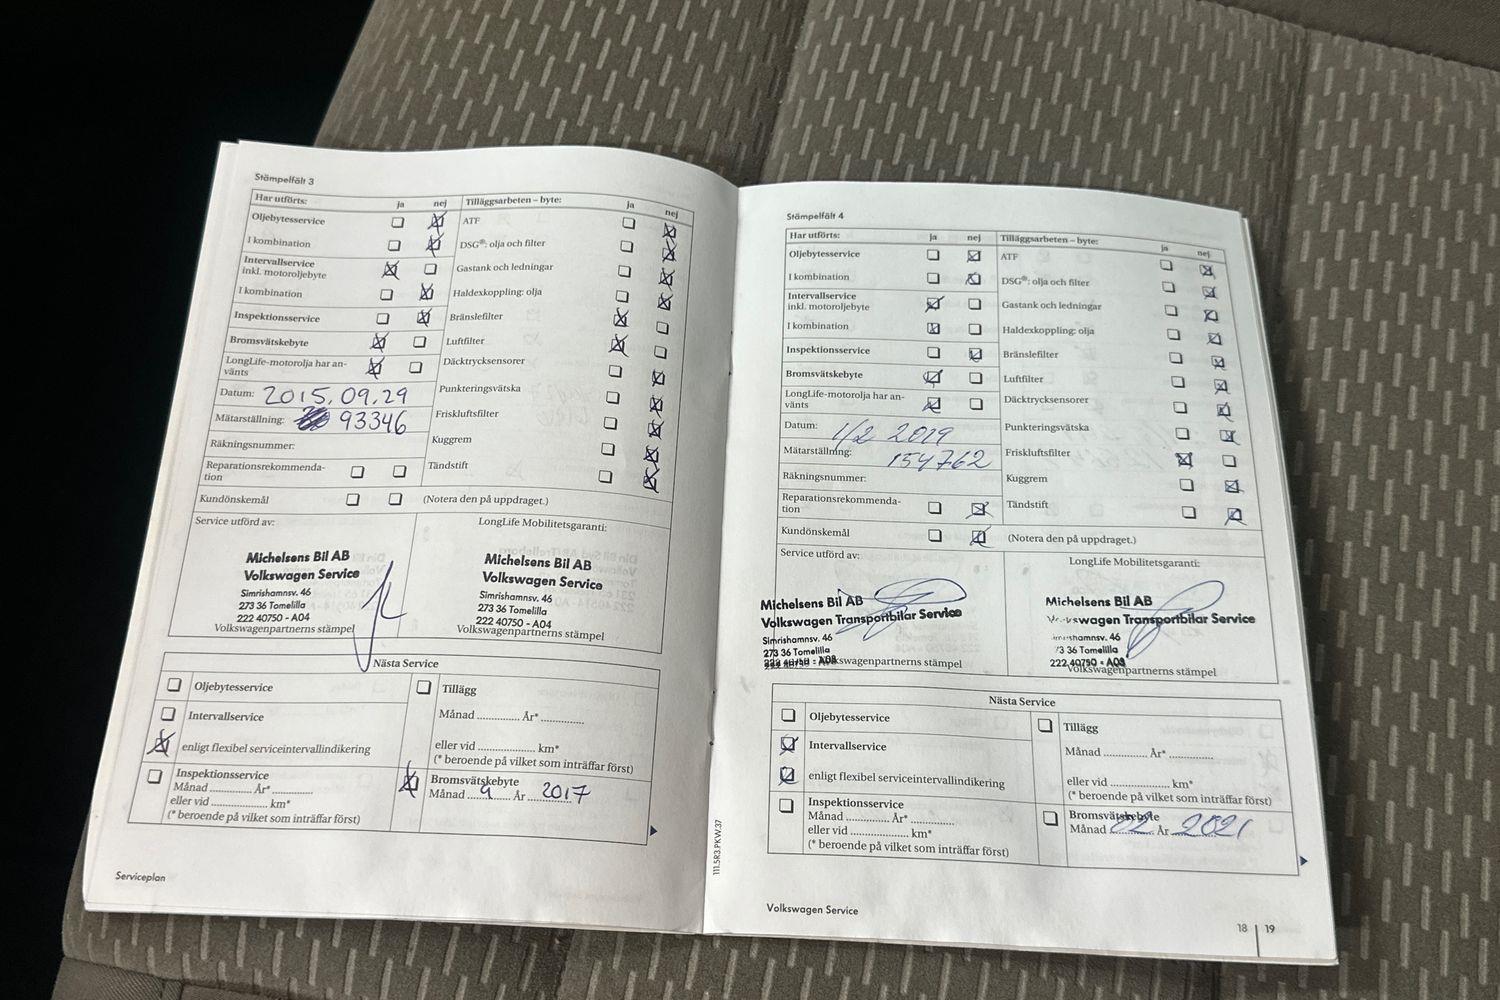 Stämpelfält 3
Har utförts: ja nej
Oljebytesservice
I kombination
Intervallservice
inkl. motoroljebyte
I kombination
Inspektionsservice
Bromsvätskebyte
LongLife-motorolja har an-
vänts
Datum: 2015.09.29
Mätarställning: 93346
Räkningsnummer:
Reparationsrekommenda-
tion
Kundönskemål
Tilläggsarbeten – byte: ja nej
ATF
DSG®: olja och filter
Gastank och ledningar
Haldexkoppling: olja
Bränslefilter
Luftfilter
Däcktrycksensorer
Punkteringsvätska
Friskluftsfilter
Kuggrem
Tändstift
(Notera den på uppdraget.)
Service utförd av:
Michelsens Bil AB
Volkswagen Service
Simrishamnsv. 46
273 36 Tomelilla
222 40750 - A04
Volkswagenpartnerns stämpel
LongLife Mobilitetsgaranti:
Michelsens Bil AB
Volkswagen Service
Simrishamnsv. 46
273 36 Tomelilla
222 40750 - A04
Volkswagenpartnerns stämpel
Nästa Service
Oljebytesservice
Intervallservice
enligt flexibel serviceintervallindikering
Inspektionsservice
Månad ........... År* ...........
eller vid ................... km*
(* beroende på vilket som inträffar först)
Tillägg
Månad ............. År* .............
eller vid .................. km*
(* beroende på vilket som inträffar först)
Bromsvätskebyte
Månad 9 År 2017
Serviceplan
111.5R3.PKW.37
Stämpelfält 4
Har utförts: ja nej
Oljebytesservice
I kombination
Intervallservice
inkl. motoroljebyte
I kombination
Inspektionsservice
Bromsvätskebyte
LongLife-motorolja har an-
vänts
Datum: 1/2 2019
Mätarställning: 154762
Räkningsnummer:
Reparationsrekommenda-
tion
Kundönskemål
Tilläggsarbeten – byte: ja nej
ATF
DSG®: olja och filter
Gastank och ledningar
Haldexkoppling: olja
Bränslefilter
Luftfilter
Däcktrycksensorer
Punkteringsvätska
Friskluftsfilter
Kuggrem
Tändstift
(Notera den på uppdraget.)
Service utförd av:
Michelsens Bil AB
Volkswagen Transportbilar Service
Simrishamnsv. 46
273 36 Tomelilla
222 40750 - A08
Volkswagenpartnerns stämpel
LongLife Mobilitetsgaranti:
Michelsens Bil AB
Transportbilar Service
46
Tomelilla
222 40750 - A08
Volkswagenpartnerns stämpel
Nästa Service
Oljebytesservice
Intervallservice
enligt flexibel serviceintervallindikering
Inspektionsservice
Månad ............. År* .............
eller vid .................. km*
(* beroende på vilket som inträffar först)
Tillägg
Månad ............. År* .............
eller vid .................. km*
(* beroende på vilket som inträffar först)
Bromsvätskebyte
Månad 02 År 2021
Volkswagen Service
18 | 19